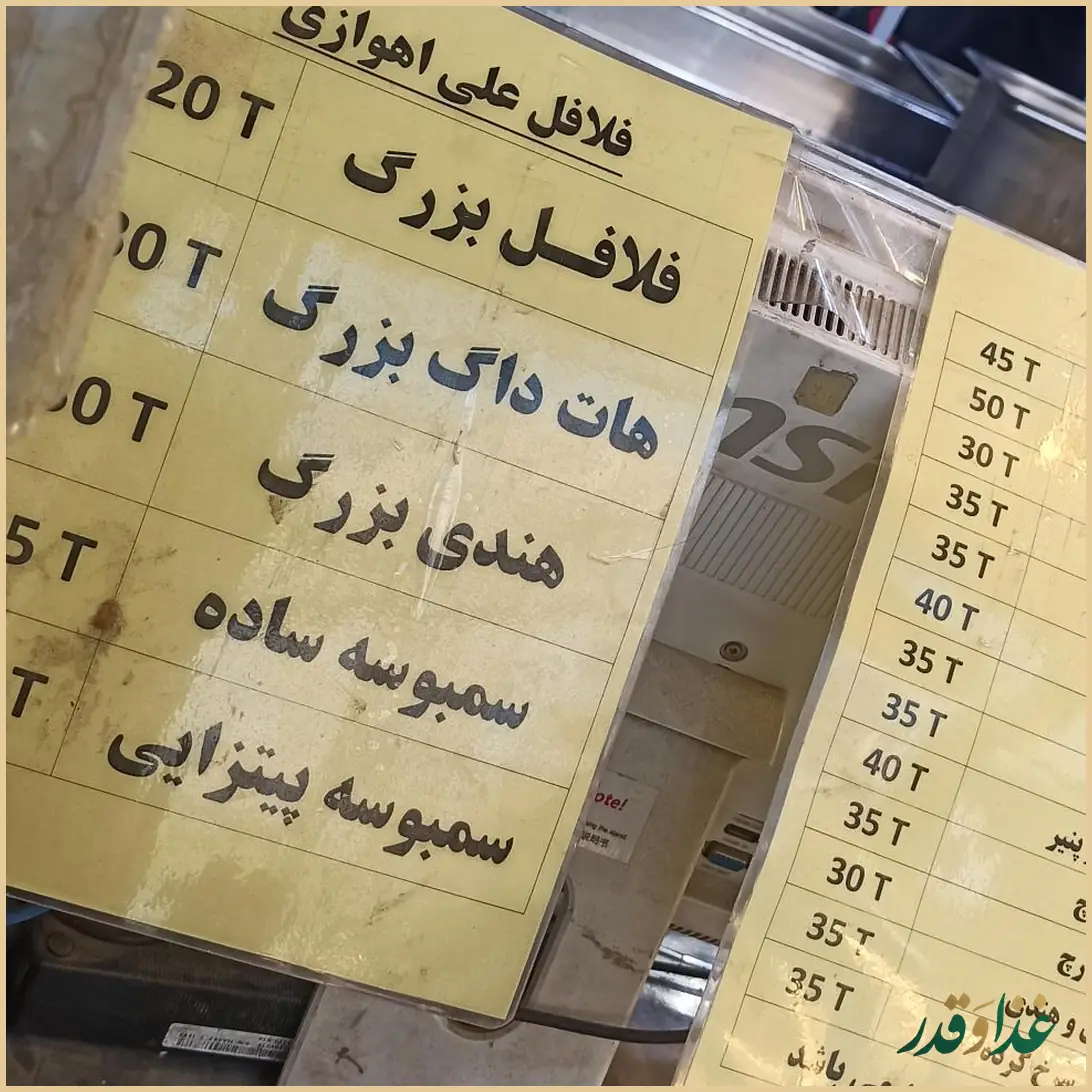 فلافل علی اهوازی
فلافل بزرگ 20 T
هات داگ بزرگ 30 T
هندی بزرگ 0 T
سمبوسه ساده 5 T
سمبوسه پیتزایی T
45 T
50 T
30 T
35 T
35 T
40 T
35 T
35 T
40 T
پنیر 35 T
30 T
35 T
و هندی 35 T
باشد
ote!
说明书
غذا و قدر